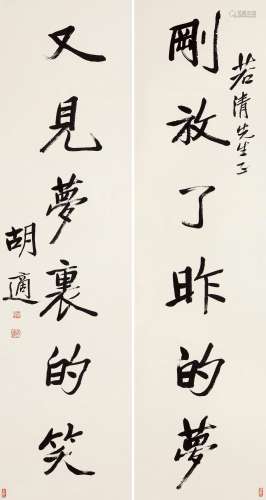 若清先生正
剛放了昨的夢
又見夢裏的笑
胡適